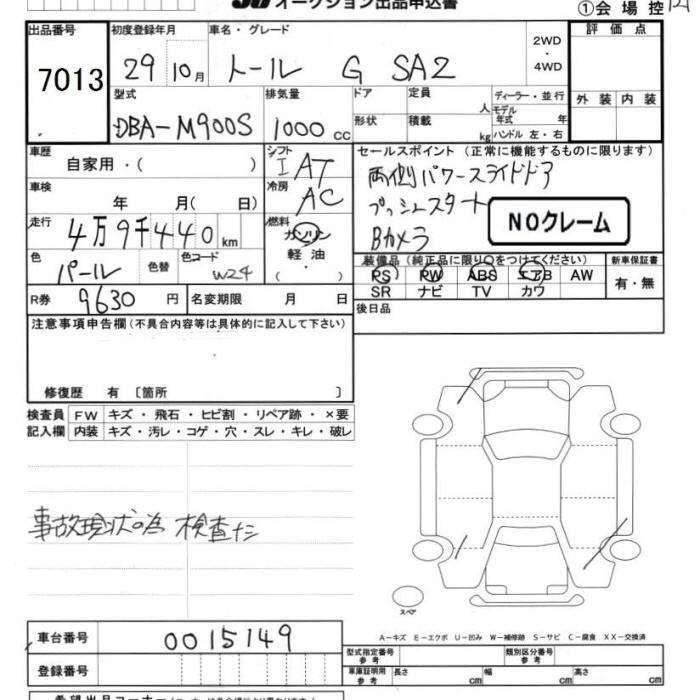 オークション出品申込書
①会場控
出品番号 7013
初度登録年月 29年10月
車名・グレード トール G SA2
2WD・4WD
評価点
外装 内装
型式 DBA-M900S
排気量 1000cc
ドア 形状
定員 人
積載 kg
ディーラー・並行
モデル年式 年
ハンドル 左・右
車歴 自家用・( )
シフト IAT
セールスポイント (正常に機能するものに限ります)
両側パワースライドドア
プッシュスタート
Bカメラ
NOクレーム
車検 年 月( 日)
冷房 AC
走行 4万9千440km
燃料 ガソリン 軽油 ( )
色 パール 色替
色コード W24
装備品 (純正品に限り○をつけてください)
PS PW ABS エアB AW
SR ナビ TV カワ
新車保証書 有・無
R券 9630円
名変期限 月 日
後日品
注意事項申告欄(不具合内容等は具体的に記入して下さい)
修復歴 有 〔箇所 〕
検査員記入欄
FW キズ・飛石・ヒビ割・リペア跡・×要
内装 キズ・汚レ・コゲ・穴・スレ・キレ・破レ
事故現状の為 検査ナシ
スペア
A－キズ E－エクボ U－凹み W－補修跡 S－サビ C－腐食 XX－交換済
車台番号 0015149
登録番号
型式指定番号 参考
類別区分番号 参考
車庫証明用 参考 長さ cm 幅 cm 高さ cm
希望出品コーナー